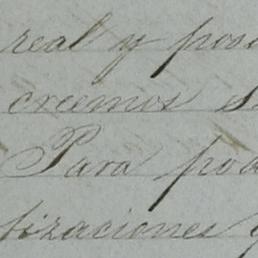 real y pos
creemos s
Para pod
tizaciones y